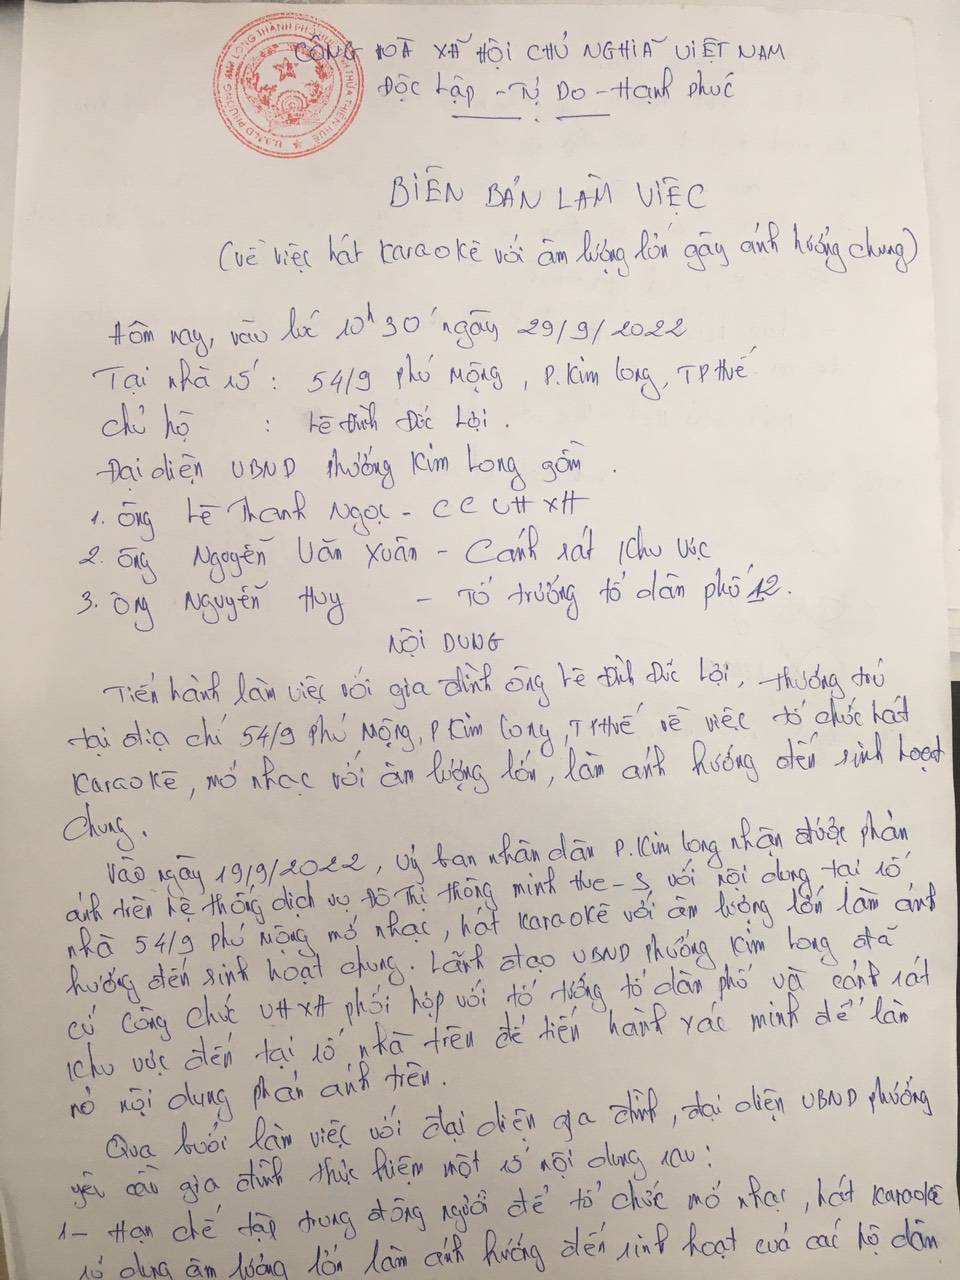 CỘNG HOÀ XÃ HỘI CHỦ NGHĨA VIỆT NAM
Độc Lập - Tự Do - Hạnh phúc
BIÊN BẢN LÀM VIỆC
(Về việc hát Karaokê với âm lượng lớn gây ảnh hưởng chung)
Hôm nay, vào lúc 10h30' ngày 29/9/2022
Tại nhà số : 54/9 phú Mộng, P. Kim Long, TP Huế
Chủ hộ : Lê Đình Đức Lợi.
Đại diện UBND phường Kim Long gồm.
1. Ông Lê Thanh Ngọc - CC VHXH
2. Ông Nguyễn Văn Xuân - Cảnh sát khu vực
3. Ông Nguyễn Huy - Tổ trưởng tổ dân phố 12.
NỘI DUNG
Tiến hành làm việc với gia đình ông Lê Đình Đức Lợi, thường trú
tại địa chỉ 54/9 Phú Mộng, P Kim Long, TP Huế về việc tổ chức hát
Karaokê, mở nhạc với âm lượng lớn, làm ảnh hưởng đến sinh hoạt
chung.
Vào ngày 19/9/2022, Uỷ ban nhân dân P. Kim Long nhận được phản
ánh trên hệ thống dịch vụ Đô Thị thông minh Hue-S, với nội dung tại số
nhà 54/9 phú Mộng mở nhạc, hát Karaokê với âm lượng lớn làm ảnh
hưởng đến sinh hoạt chung. Lãnh đạo UBND phường Kim Long đã
cử Công chức VHXH phối hợp với tổ trưởng tổ dân phố và cảnh sát
khu vực đến tại số nhà trên để tiến hành xác minh để làm
rõ nội dung phản ánh trên.
Qua buổi làm việc với đại diện gia đình, đại diện UBND phường
yêu cầu gia đình thực hiện một số nội dung sau:
1- Hạn chế tập trung đông người để tổ chức mở nhạc, hát Karaokê
sử dụng âm lượng lớn làm ảnh hưởng đến sinh hoạt của các hộ dân